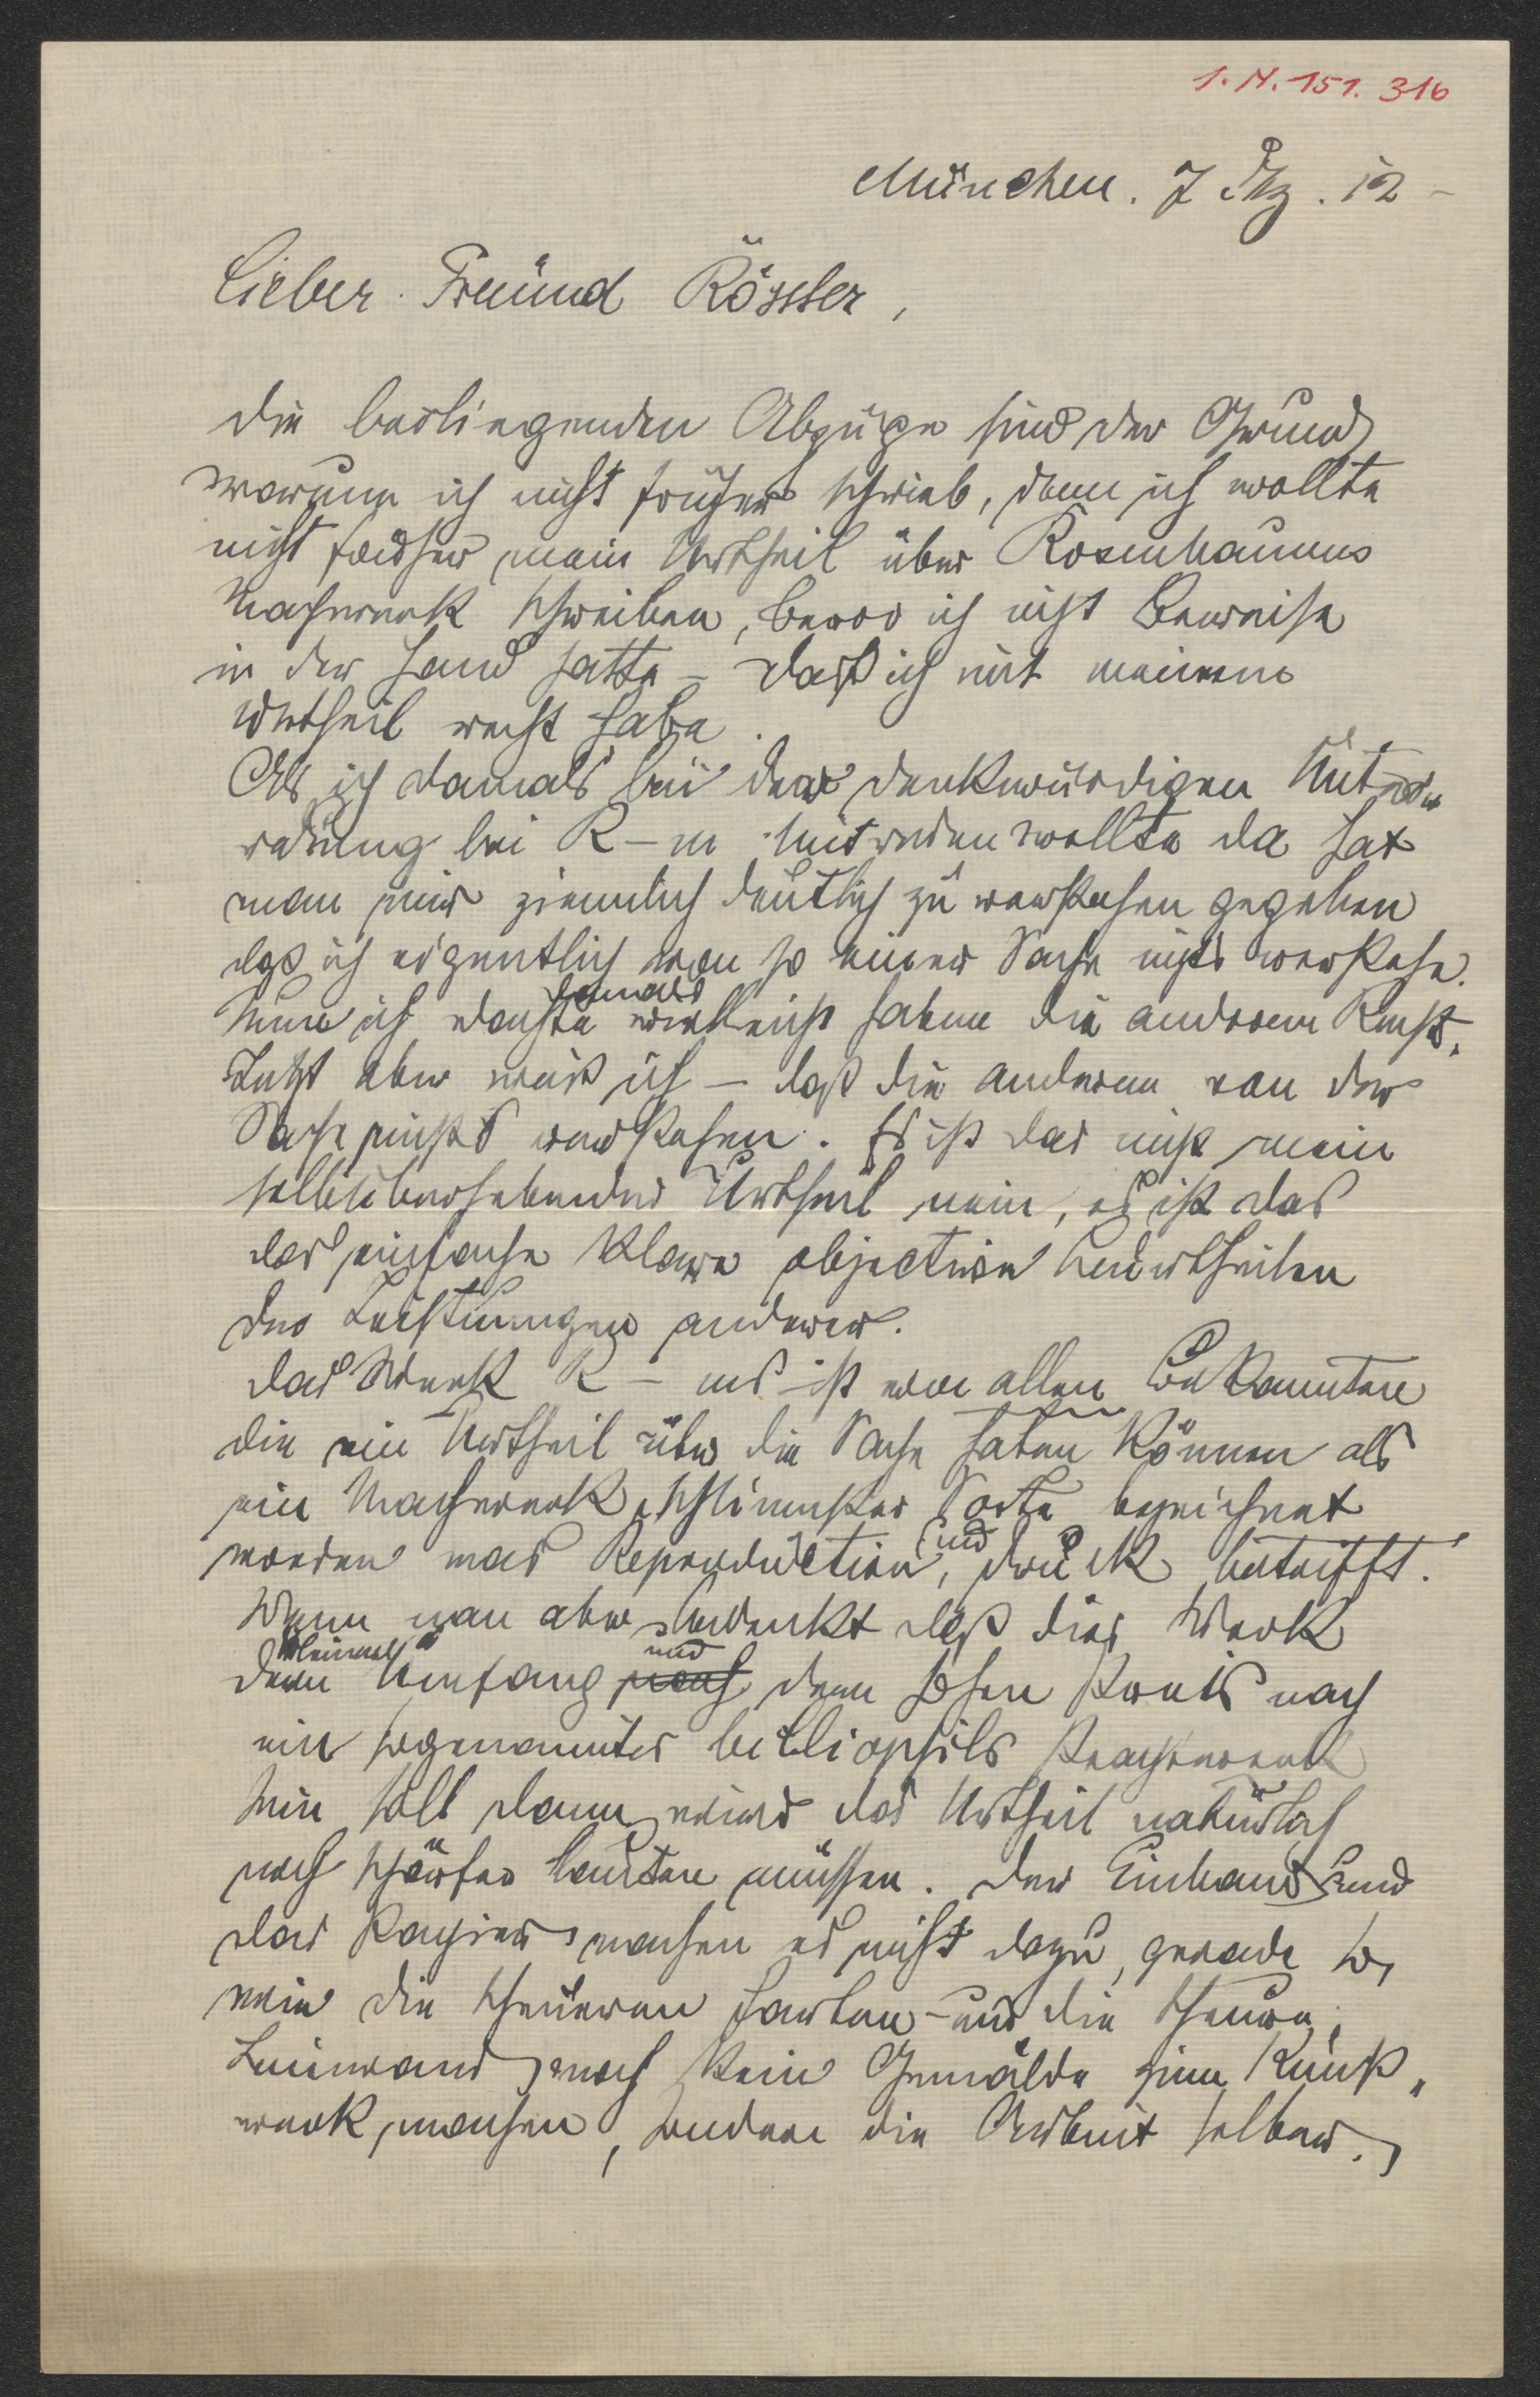 1. N. 151. 316
München. 7 Dez. 12 –
Lieber Freund Rössler,
die beiliegenden Abzüge sind der Grund
warum ich nicht früher schrieb, denn ich wollte
nicht früher mein Urtheil über Rosenbaums
Machwerk schreiben, bevor ich nicht Beweise
in der Hand hatte – daß ich mit meinem
Urtheil recht habe.
Als ich damals bei der denkwürdigen Unter„
redung bei R–m mitreden wollte da hat
man mir ziemlich deutlich zu verstehen gegeben
daß ich eigentlich von so einer Sache nichts verstehe.
Nun ich dachte damals vielleicht haben die anderen Recht.
Jetzt aber weiß ich – daß die anderen von der
Sache nichts verstehen. Es ist das nicht mein
selbstüberhebendes Urtheil nein, es ist das
das einfache klare objective beurtheilen
des Leistungen anderer.
Das Werk R–ms ist von allen Bekannten
die ein Urtheil über die Sache haben können als
ein Machwerk schlimmster Sorte bezeichnet
worden was Reproduction, und Druck betrifft.
Wenn man aber bedenkt daß dies Werk
dem kleinen Umfang noch und dem hohen Preis nach
ein sogenanntes bibliophils Prachtwerk
sein soll dann wird das Urtheil natürlich
noch schärfer lauten müssen. Der Einband und
das Papier machen es nicht dazu, gerade so,
wie die theueren Farben und die theure
Leinwand noch kein Gemälde zum Kunst„
werk machen, sondern die Arbeit selber.